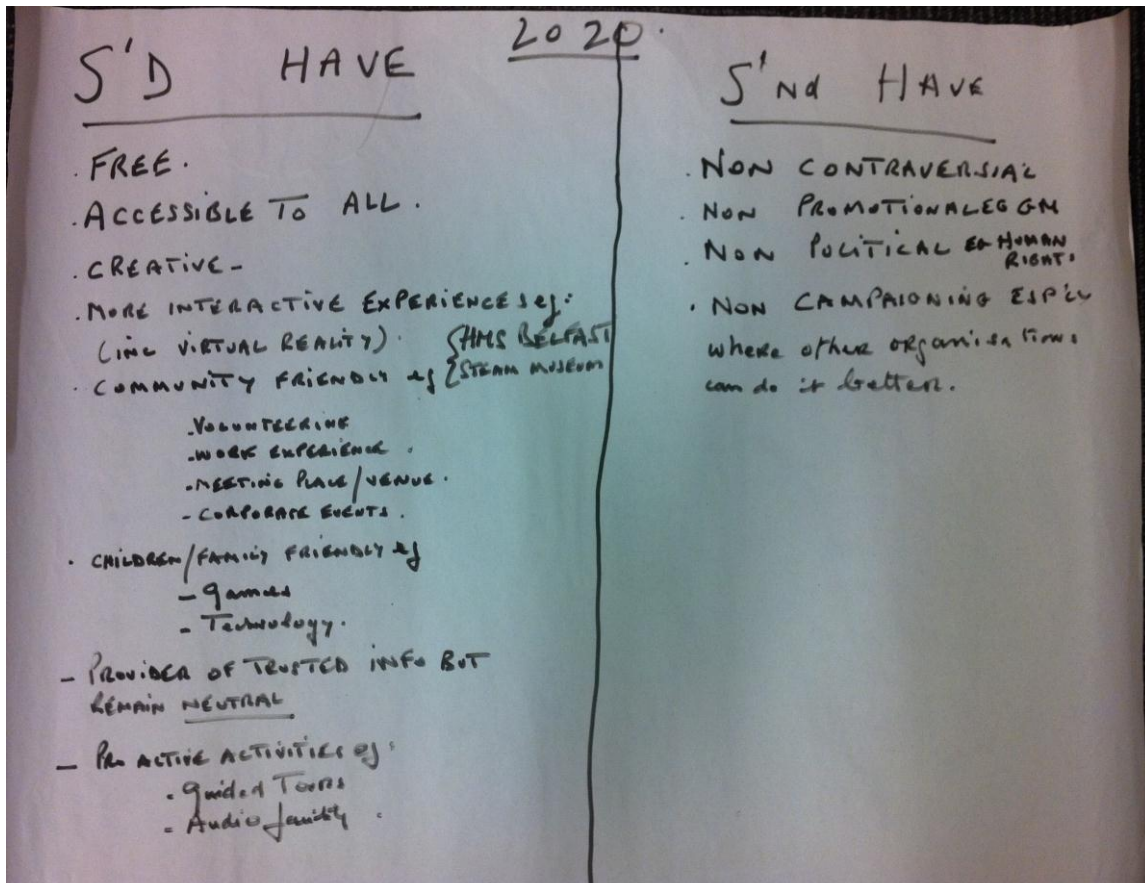 2020.
S'D HAVE
. FREE.
. ACCESSIBLE TO ALL.
. CREATIVE -
. MORE INTERACTIVE EXPERIENCES eg:
(INC VIRTUAL REALITY). {HMS BELFAST
. COMMUNITY FRIENDLY eg {STEAM MUSEUM
. VOLUNTEERING
- WORK EXPERIENCE.
- MEETING PLACE/VENUE.
- CORPORATE EVENTS.
. CHILDREN/FAMILY FRIENDLY eg
- Games
- Technology.
- PROVIDER OF TRUSTED INFO BUT
REMAIN NEUTRAL
- PRO ACTIVE ACTIVITIES eg:
. Guided Tours
- Audio facility.
S'Nd HAVE
. NON CONTRAVERSIAL
. NON PROMOTIONAL EG GM
. NON POLITICAL EG HUMAN
RIGHTS
. NON CAMPAIGNING ESP'LY
where other organisations
can do it better.